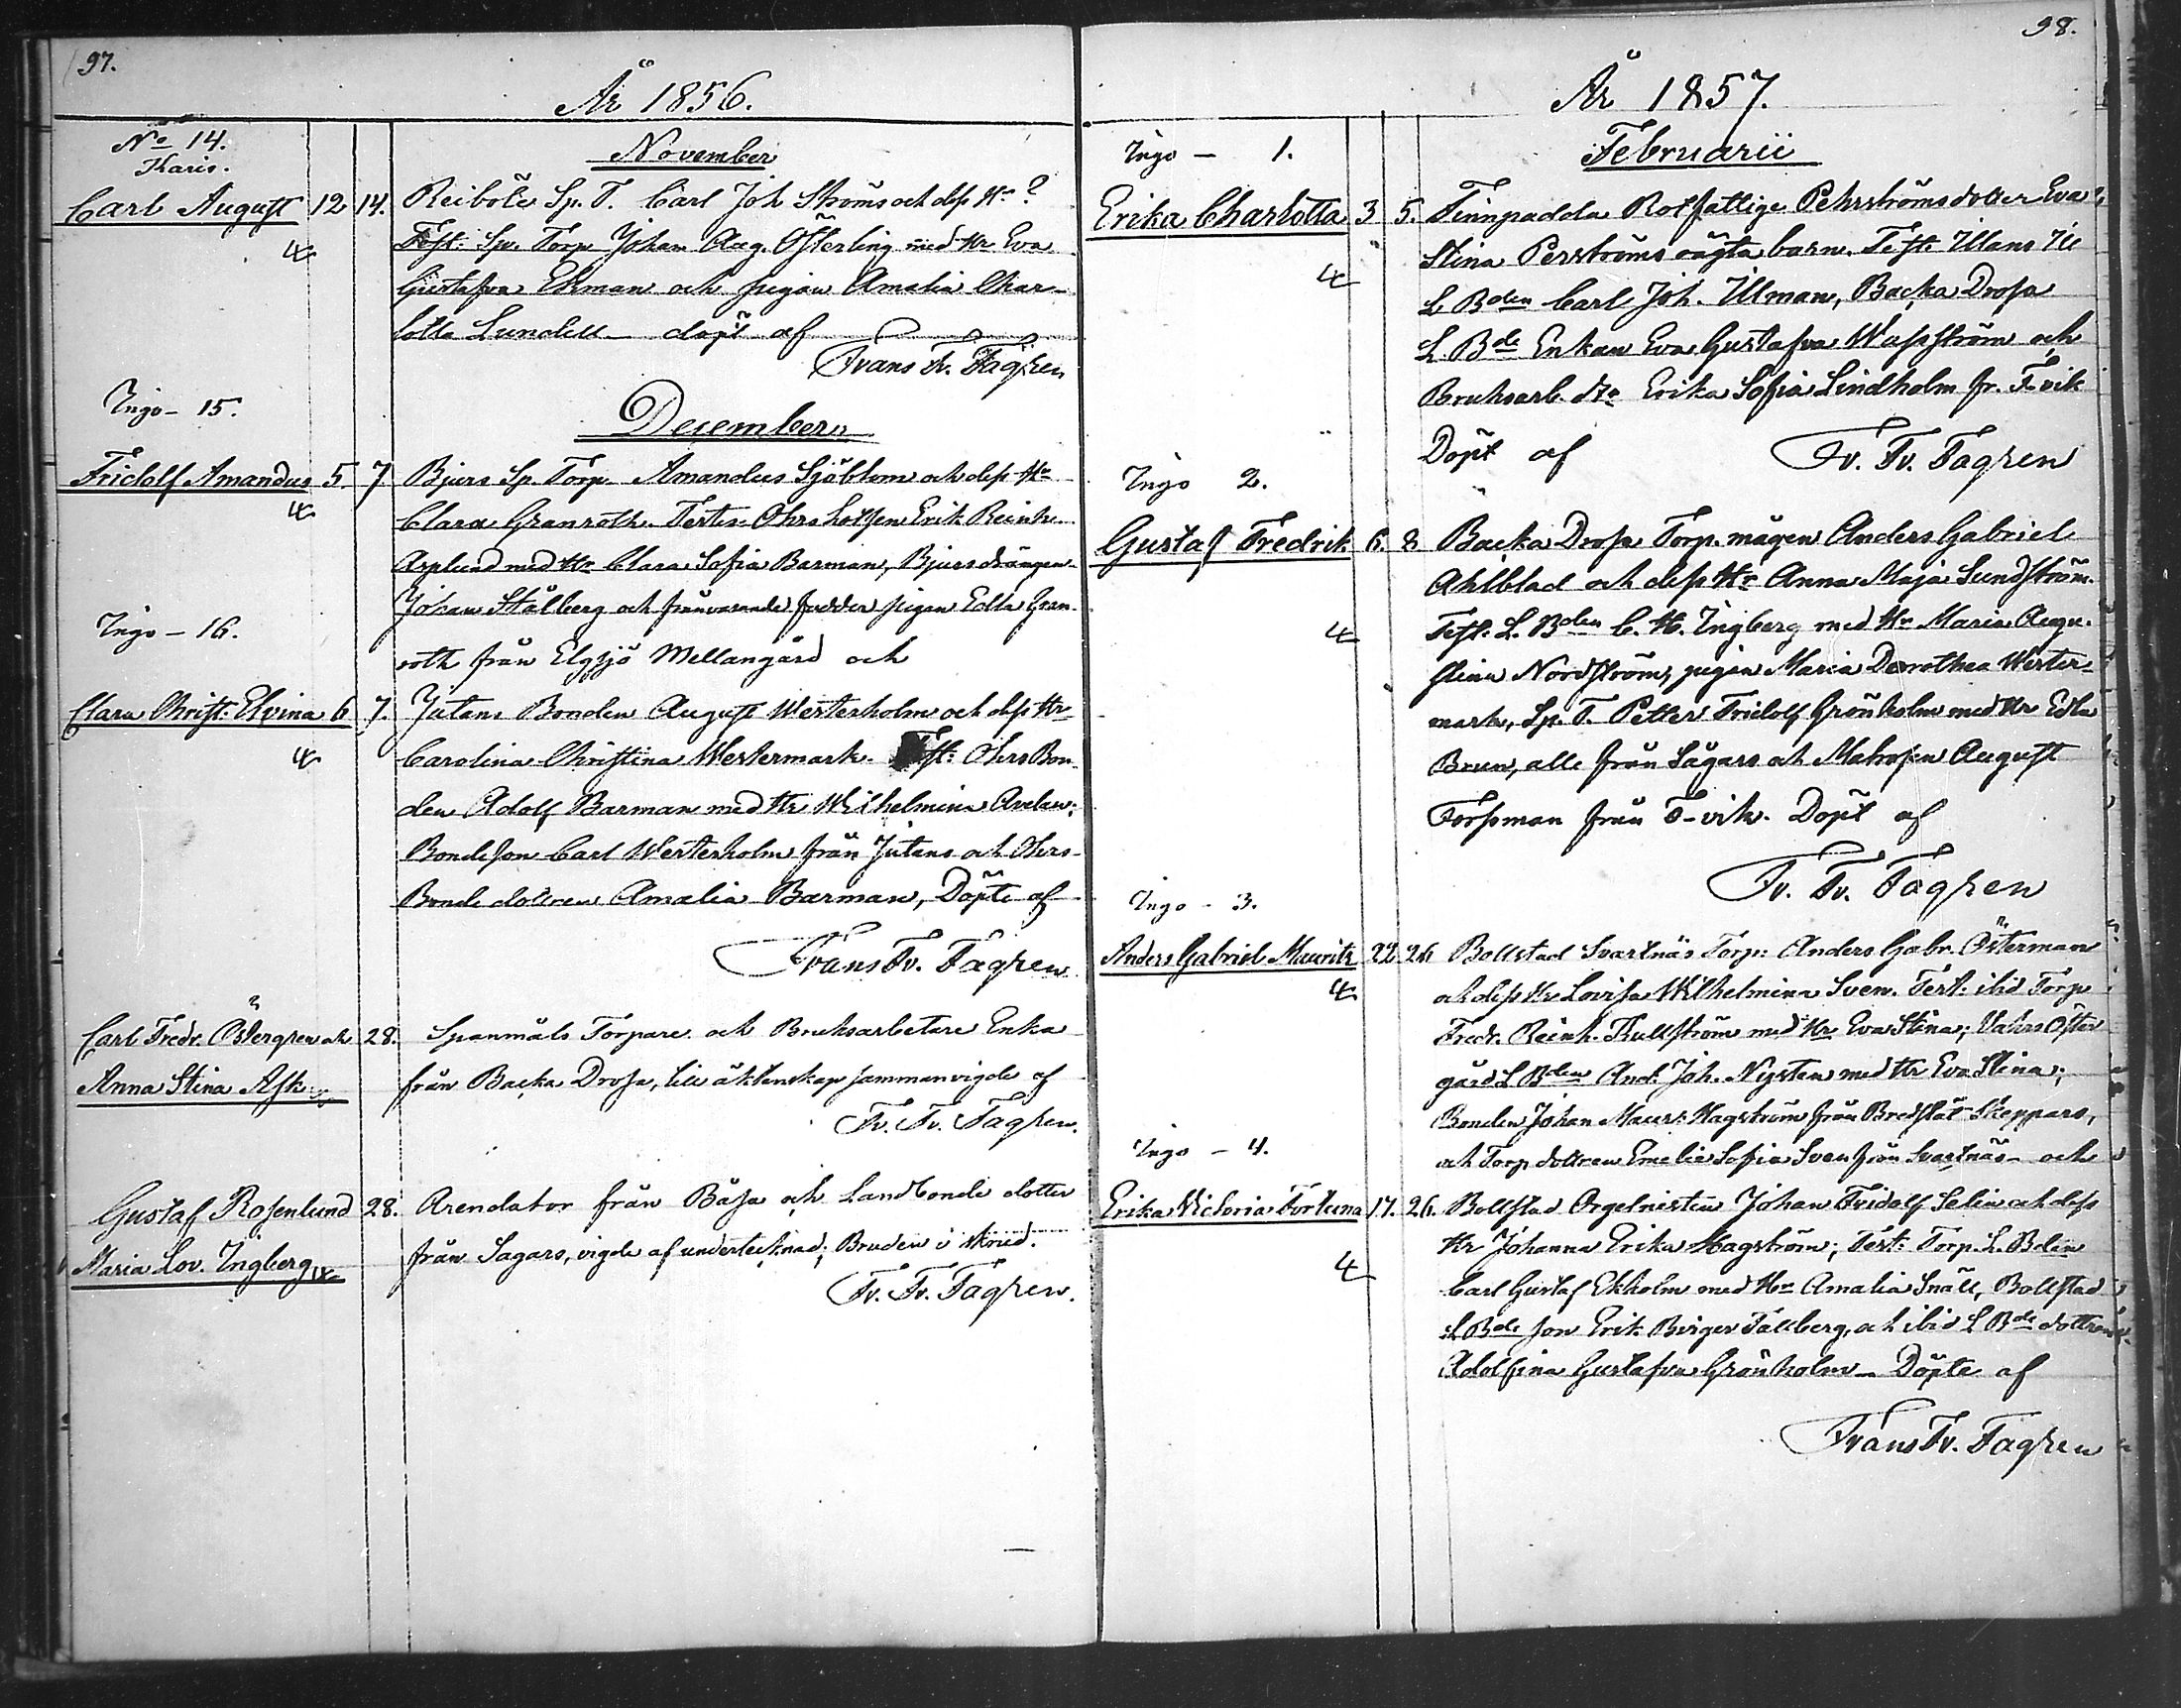 97.
År 1856.
No 14.
Karis.
November
Carl August 12 14. Reiböle Sp. T. Carl Joh Ströms och dess Hu ?
Test: Sp. Torp Johan Aug. Österling med Hu Eva
Gustafva Ekman och pigan Amalia Char-
lotta Lundell döpt af
Frans Fr. Fagren
Ingo - 15.
December
Fridolf Amandus 5. 7 Bjurs Sp. Torp. Amandus Sjöblom och dess Hu
Clara Granroth. Testes Ohrs Erik Reinh.
Asplund med Hu Clara Sofia Barman, Bjurs drängen
Johan Stålberg och frånvarande fadder pigan Edla Gran-
roth från Elgsjö Mellangård och
Ingo - 16.
Clara Christ. Elvina 6 7. Jutans Bonden August Westerholm och dess Hu
Carolina Christina Westermark. Test: Ohrs Bon-
den Adolf Barman med Hu Wilhelmina
Bondeson Carl Westerholm från Jutans och Ohrs
Bonde dottren Amalia Barman, Döpte af
Frans Fr. Fagren
Carl Fredr. Östergren och 28. Spanmåls Torpare och Bruksarbetare Enka
Anna Stina Ask från Backa Drosa, till äktenskap sammanvigde af
Fr. Fr. Fagren.
Gustaf Rosenlund 28. Arendator från Båsa och Landbonde dotter
Maria Lov. Ingberg från Sagars, vigde af undertecknad; Bruden i skrud.
Fr. Fr. Fagren.
98.
År 1857.
Februarii
Ingo - 1.
Erika Charlotta 3 5. Finnpadda Rotfattige Pehrströms dotter Eva
Stina Perströms oägta barn. Test: Illans
L Bden Carl Joh. Illman, Backa Drosa
L. Bde Enkan Eva Gustafva Wassström och
Bruksarb. Hu Erika Sofia Lindholm fr. F-vik
Döpt af Fr. Fr. Fagren
Ingo 2.
Gustaf Fredrik 6. 8 Backa Drosa Torp. mågen Anders Gabriel
Ahlblad och dess Hu Anna Maja Sundström.
Test. L. Bden C. H. Ingberg med Hu Maria Augu-
stina Nordström, pigan Maria Dorothea Wester-
mark, Sp. T. Petter Fridolf Grönholm med Hu Edla
Brun, alle från Sågars och Matrosen August
Forssman från F-vik. Döpt af
Fr. Fr. Fagren
Ingo - 3.
Anders Gabriel Mauritz 22 26 Bollstad Svartnäs Torp: Anders Gabr. Österman
och dess Hu Lovisa Wilhelmina Sven. Test: ibid Torp
Fredr. Reinh. Kullström med Hu Eva Stina; Vahrs Öster
gård L Bden And. Joh. Nysten med Hu Eva Stina;
Bonden Johan Maur: Hagström från Bredslät Skeppars,
och Torp dottren Emelie Sofia Sven från Svartnäs och
Ingo - 4.
Erika Victoria Fortuna 17. 26. Bollstad Orgelnisten Johan Fridolf Selin och dess
Hu Johanna Erika Hagström; Test: Torp. L. Bden
Carl Gustaf Ekholm med Hu Amalia Snäll, Bollstad
L Bde son Erik Birger Fallberg, och ibid L Bde dottren
Adolfina Gustafva Grönholm - Döpte af
Frans Fr. Fagren